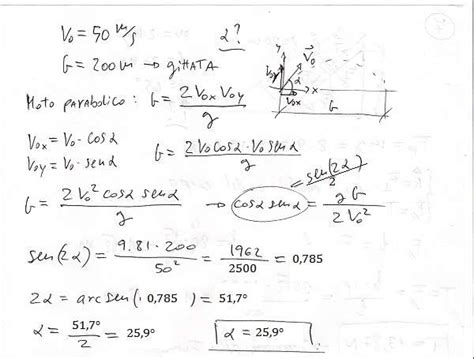 V₀ = 50 m/s    α?
G = 200 m → gittata
Moto parabolico : G = 2 V₀ₓ V₀y / g
V₀ₓ = V₀ · cos α
V₀y = V₀ · sen α    G = 2 V₀ cos α · V₀ sen α / g
G = 2 V₀² cos α sen α / g → cos α sen α = g G / 2 V₀²
= sen(2α) / 2
sen(2α) = 9.81 · 200 / 50² = 1962 / 2500 = 0,785
2α = arcsen( 0,785 ) = 51,7°
α = 51,7° / 2 = 25,9°    α = 25,9°
y V₀
V₀y α
x
V₀ₓ
G